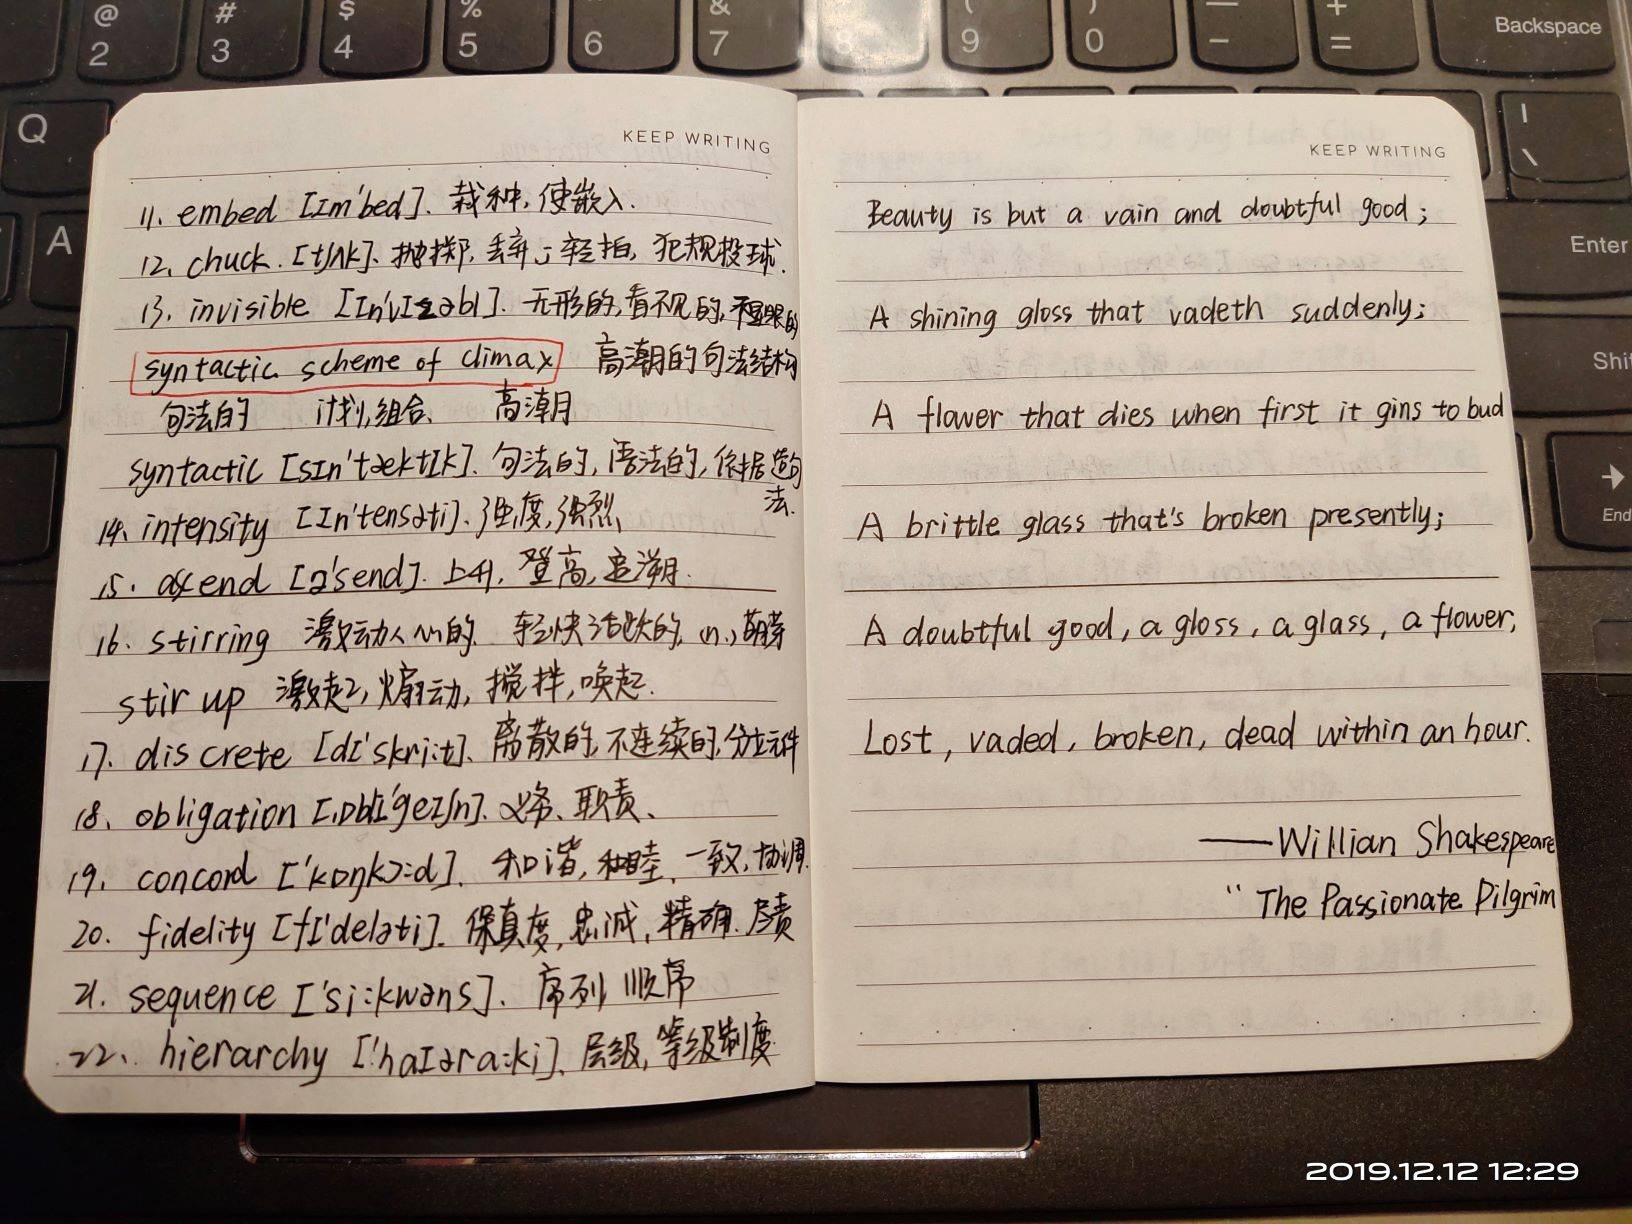 @ # $ % & ( ) — +
2 3 4 5 6 7 8 9 0 - = Backspace
Q
A
|
\
Enter
Shi
End
KEEP WRITING
11. embed [Im'bed]. 栽种, 使嵌入.
12. chuck. [tʃʌk]. 抛掷, 丢弃; 轻拍, 犯规投球.
13. invisible [In'vIzəbl]. 无形的, 看不见的, 不显眼的
syntactic scheme of climax 高潮的句法结构
句法的 计划,组合. 高潮
syntactic [sIn'tæktIk]. 句法的, 语法的, 依据造句
法.
14. intensity [In'tensəti]. 强度, 强烈
15. ascend [ə'send]. 上升, 登高, 追溯.
16. stirring 激动人心的. 轻快活跃的. (n.) 萌芽
stir up 激起, 煽动, 搅拌, 唤起.
17. discrete [dI'skri:t]. 离散的, 不连续的, 分立元件
18. obligation [,ɒblI'geIʃn]. 义务、职责、
19. concord ['kɒŋkɔ:d]. 和谐, 和睦、一致, 协调.
20. fidelity [fI'deləti]. 保真度, 忠诚, 精确. 尽责
21. sequence ['si:kwəns]. 序列 顺序
22. hierarchy ['haIəra:ki]. 层级, 等级制度
KEEP WRITING
Beauty is but a vain and doubtful good;
A shining gloss that vadeth suddenly;
A flower that dies when first it gins to bud
A brittle glass that's broken presently;
A doubtful good, a gloss, a glass, a flower,
Lost, vaded, broken, dead within an hour.
——Willian Shakespeare
"The Passionate Pilgrim
2019.12.12 12:29